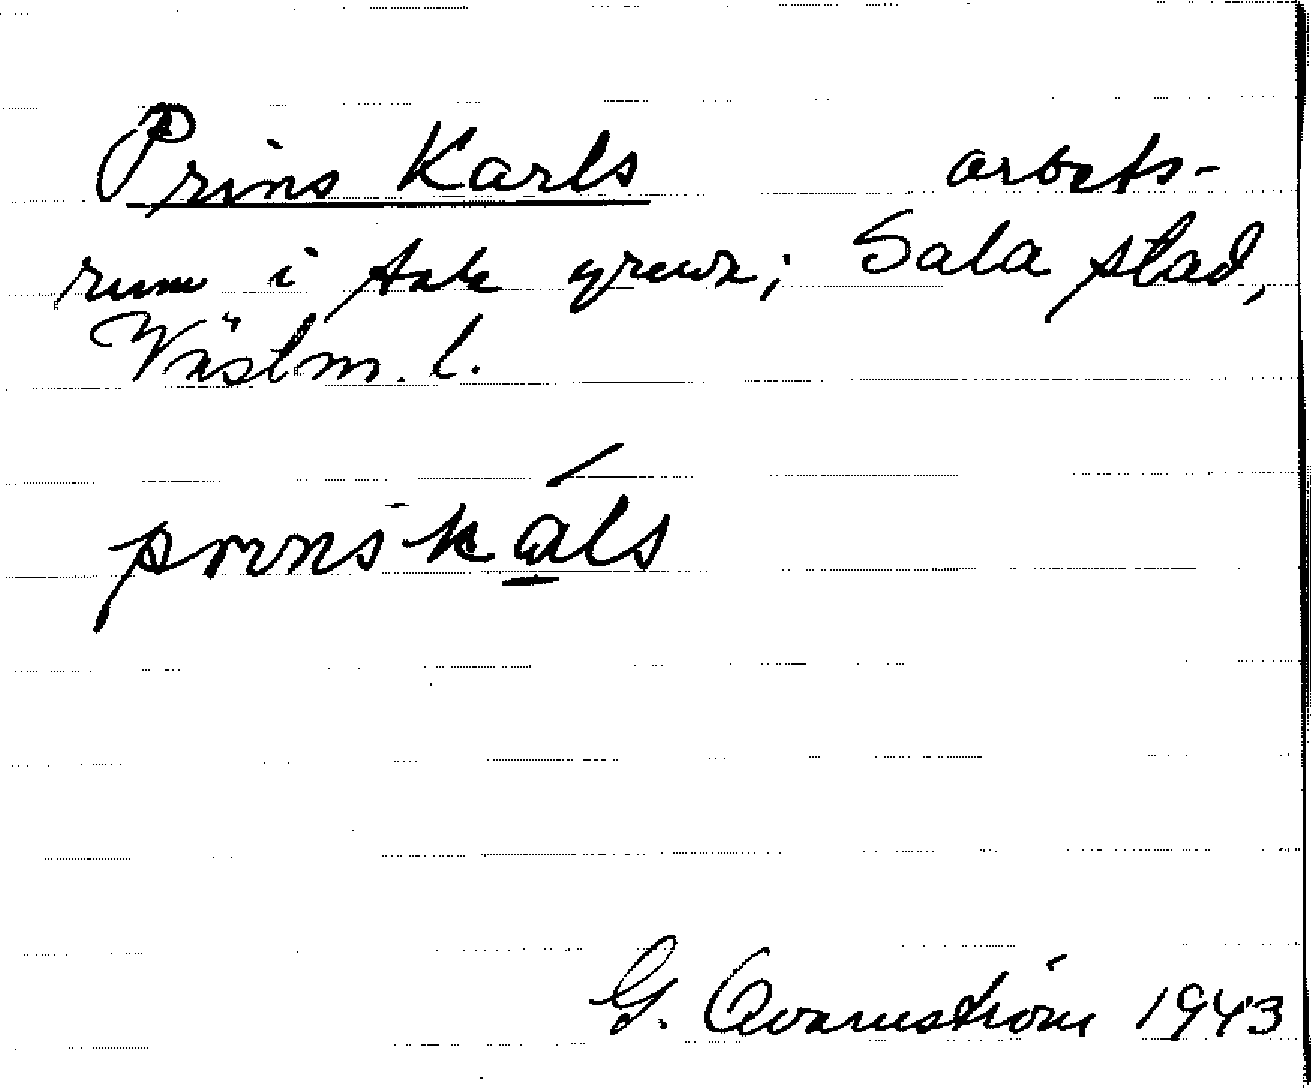 Prins Karls arbets-
rum i Sala gruva; Sala stad,
Västm. l.
prins káls
G. Qvarnström 1943